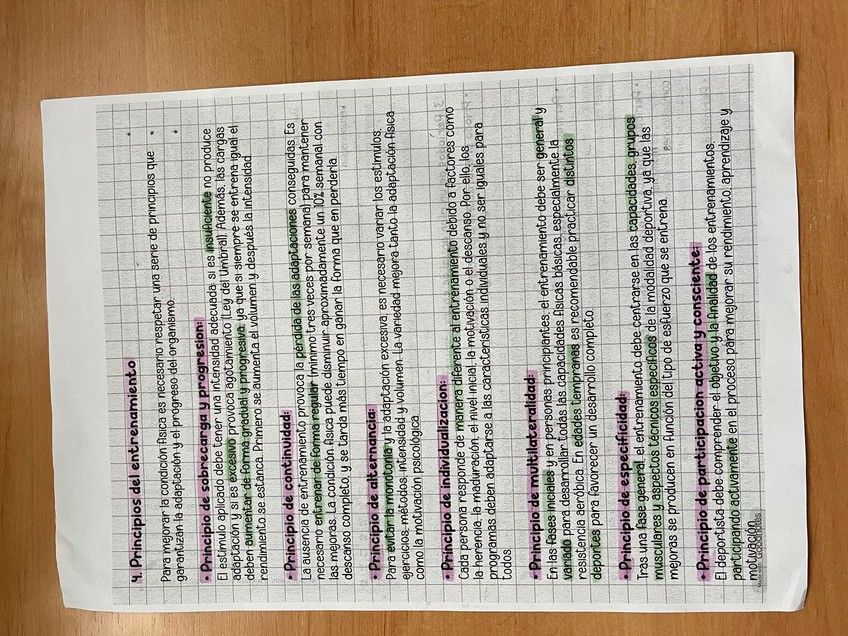 4. Principios del entrenamiento
Para mejorar la condición física es necesario respetar una serie de principios que
garantizan la adaptación y el progreso del organismo.
• Principio de sobrecarga y progresion:
El estímulo aplicado debe tener una intensidad adecuada: si es insuficiente no produce
adaptación y si es excesivo provoca agotamiento (Ley del Umbral). Además, las cargas
deben aumentar de forma gradual y progresiva, ya que si siempre se entrena igual el
rendimiento se estanca. Primero se aumenta el volumen y después la intensidad.
• Principio de continuidad:
La ausencia de entrenamiento provoca la pérdida de las adaptaciones conseguidas. Es
necesario entrenar de forma regular (mínimo tres veces por semana) para mantener
las mejoras. La condición física puede disminuir aproximadamente un 10% semanal con
descanso completo, y se tarda más tiempo en ganar la forma que en perderla.
• Principio de alternancia:
Para evitar la monotonía y la adaptación excesiva, es necesario variar los estímulos,
ejercicios, métodos, intensidad y volumen. La variedad mejora tanto la adaptación física
como la motivación psicológica.
• Principio de individualizacion:
Cada persona responde de manera diferente al entrenamiento debido a factores como
la herencia, la maduración, el nivel inicial, la motivación o el descanso. Por ello, los
programas deben adaptarse a las características individuales y no ser iguales para
todos.
• Principio de multilateralidad:
En las fases iniciales y en personas principiantes, el entrenamiento debe ser general y
variado para desarrollar todas las capacidades físicas básicas, especialmente la
resistencia aeróbica. En edades tempranas es recomendable practicar distintos
deportes para favorecer un desarrollo completo.
• Principio de especificidad:
Tras una fase general, el entrenamiento debe centrarse en las capacidades, grupos
musculares y aspectos técnicos específicos de la modalidad deportiva, ya que las
mejoras se producen en función del tipo de esfuerzo que se entrena.
• Principio de participacion activa y consciente:
El deportista debe comprender el objetivo y la finalidad de los entrenamientos,
participando activamente en el proceso para mejorar su rendimiento, aprendizaje y
motivación.